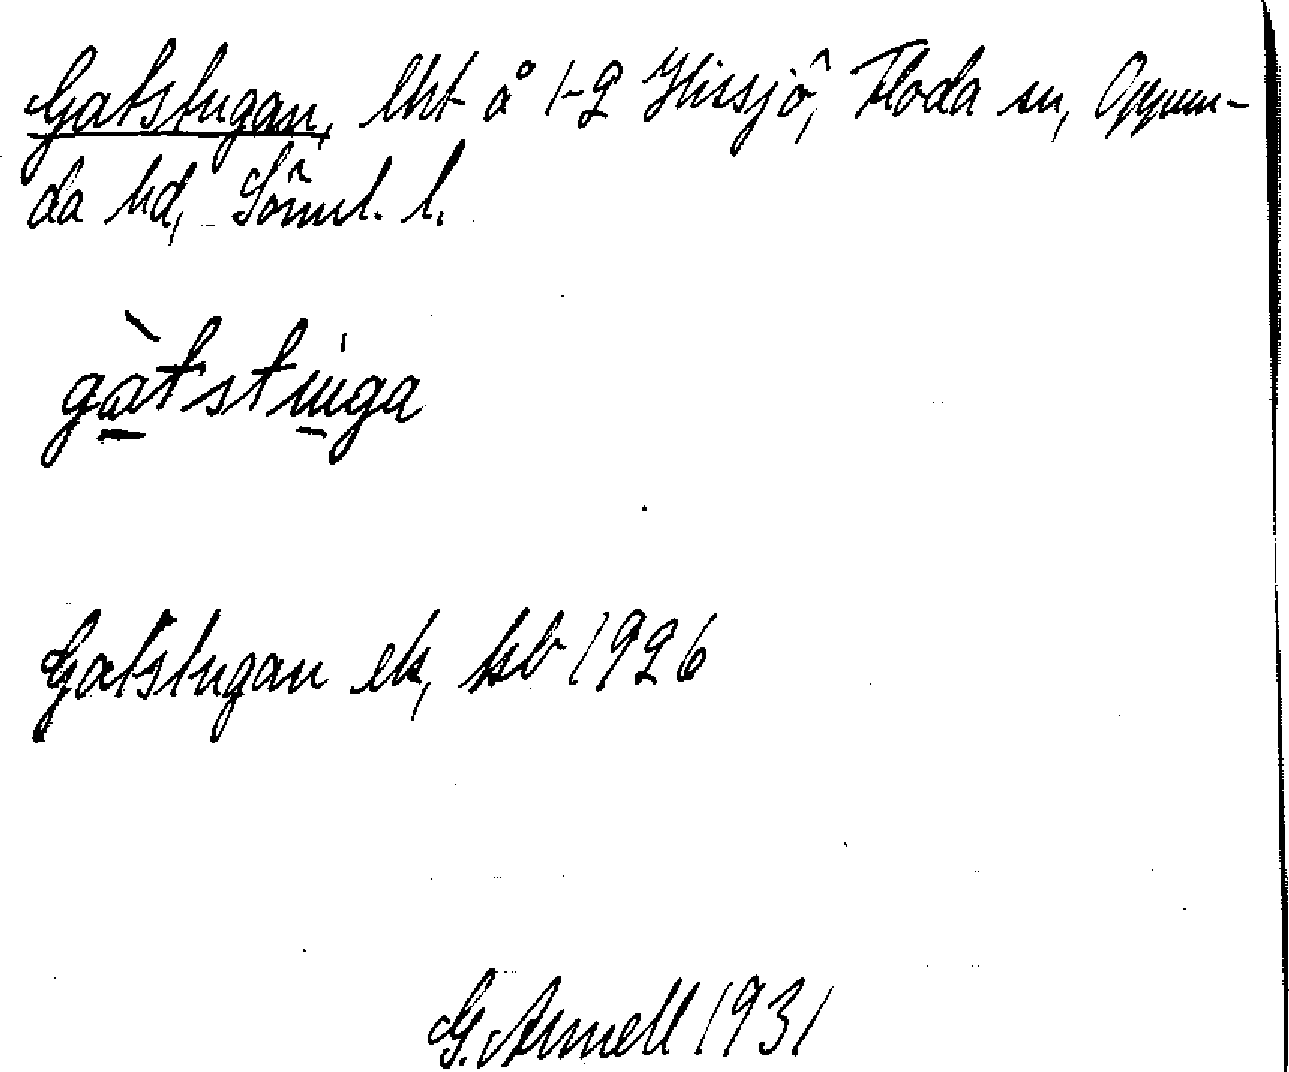 Gatstugan, lht å 1-2 Hissjö, Floda sn, Oppun-
da hd, Söml. l.
gàtstuga
Gatstugan ek, kb 1926
G. Arnell 1931